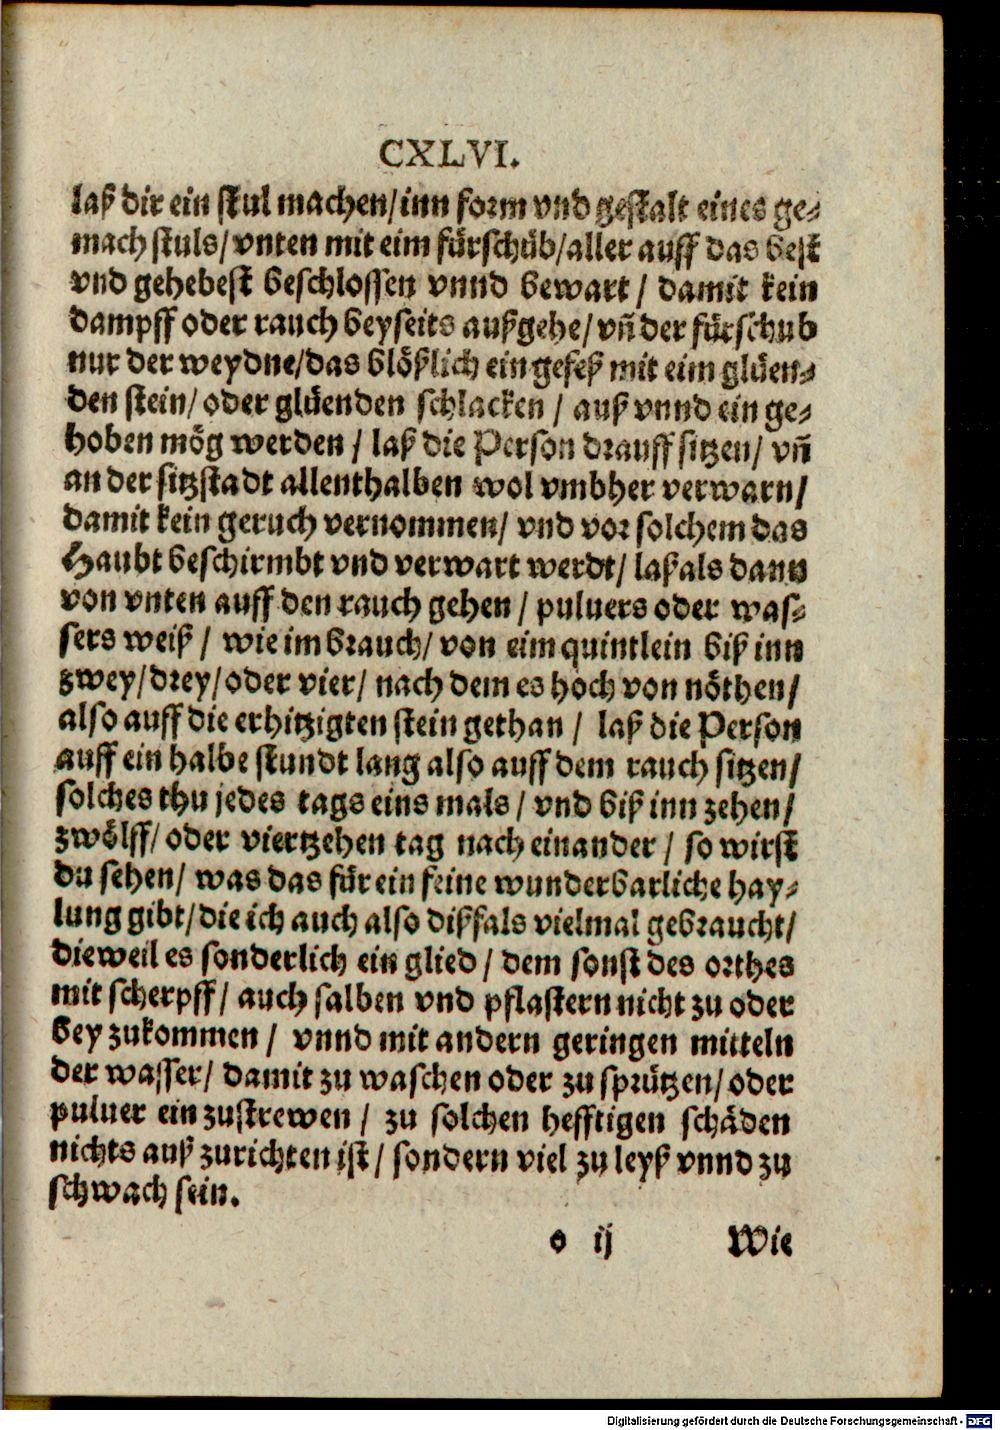 CXLVI.
laß dir ein stul machen/inn form vnd gestalt eines ge⸗
mach stuls/ vnten mit eim fürschüb/aller auff das best
vnd gehebest beschlossen vnnd bewart / damit kein
dampff oder rauch beyseits außgehe/ vñ der fürschub
nur der weydne/das blößlich ein gefeß mit eim glüen⸗
den stein/ oder glüenden schlacken / auß vnnd ein ge⸗
hoben mög werden / laß die Person drauff sitzen/ vñ
an der sitzstadt allenthalben wol vmbher verwarn/
damit kein geruch vernommen/ vnd vor solchem das
Haubt beschirmbt vnd verwart werdt/ laß als dann
von vnten auff den rauch gehen / puluers oder was⸗
sers weiß / wie im brauch/ von eim quintlein biß inn
zwey/drey/oder vier/ nach dem es hoch von nöthen/
also auff die erhitzigten stein gethan / laß die Person
auff ein halbe stundt lang also auff dem rauch sitzen/
solches thu jedes tags eins mals / vnd biß inn zehen/
zwölff/ oder viertzehen tag nach einander / so wirst
du sehen/ was das für ein feine wunderbarliche hay⸗
lung gibt/die ich auch also dißfals vielmal gebraucht/
dieweil es sonderlich ein glied / dem sonst des orthes
mit scherpff/ auch salben vnd pflastern nicht zu oder
bey zukommen / vnnd mit andern geringen mitteln
der wasser/ damit zu waschen oder zu sprützen/ oder
puluer ein zustrewen / zu solchen hefftigen schäden
nichts auß zurichten ist / sondern viel zu leyß vnnd zu
schwach sein.
o ij Wie
Digitalisierung gefördert durch die Deutsche Forschungsgemeinschaft - DFG